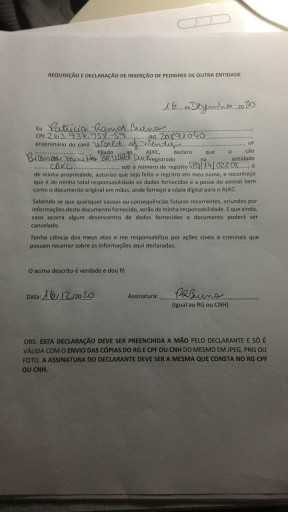 REQUISIÇÃO E DECLARAÇÃO DE INSERÇÃO DE PEDIGREE DE OUTRA ENTIDADE
16 Dezembro 20
Eu Patricia Ramos Bueno
CPF 263.937.958-59 RG 20891040
proprietário do canil World of Wendy nº
filiado ALKC, declaro que o cão
registrado na entidade
CBKC sob o número de registro é
de minha propriedade, autorizo que seja feito o registro em meu nome, e reconheço
que é de minha total responsabilidade os dados fornecidos e a posse do animal bem
como o documento original em mãos, onde forneço a cópia digital para o ALKC.
Sabendo se que quaisquer causas ou consequências futuras recorrentes, oriundos por
informações deste documento fornecido, serão de minha responsabilidade. E que ainda,
caso ocorra algum desencontro de dados fornecidos o documento poderá ser
cancelado.
Tenho ciência dos meus atos e me responsabilizo por ações cíveis e criminais que
possam recorrer sobre as informações aqui declaradas.
O acima descrito é verdade e dou fé
Data: 16/12/2020 Assinatura: PRBueno
(Igual ao RG ou CNH)
OBS: ESTA DECLARAÇÃO DEVE SER PREENCHIDA A MÃO PELO DECLARANTE E SÓ É
VÁLIDA COM O ENVIO DAS CÓPIAS DO RG E CPF OU CNH DO MESMO EM JPEG, PNG OU
FOTO. A ASSINATURA DO DECLARANTE DEVE SER A MESMA QUE CONSTA NO RG CPF
OU CNH.